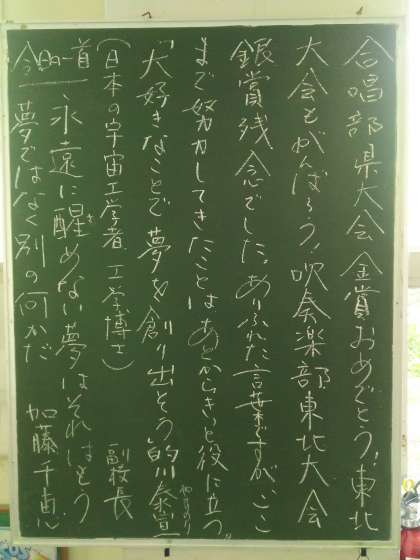 合唱部県大会金賞おめでとう!東北
大会もがんばろう!吹奏楽部東北大会
銀賞残念でした。ありふれた言葉ですがここ
まで努力してきたことはあとからきっと役に立つ。
「大好きなことで夢を創り出そう」的川泰宣
やすのり
(日本の宇宙工学者 工学博士) 副校長
今日の一首
永遠に醒めない夢はそれはもう
さ
夢ではなく別の何かだ 加藤千恵